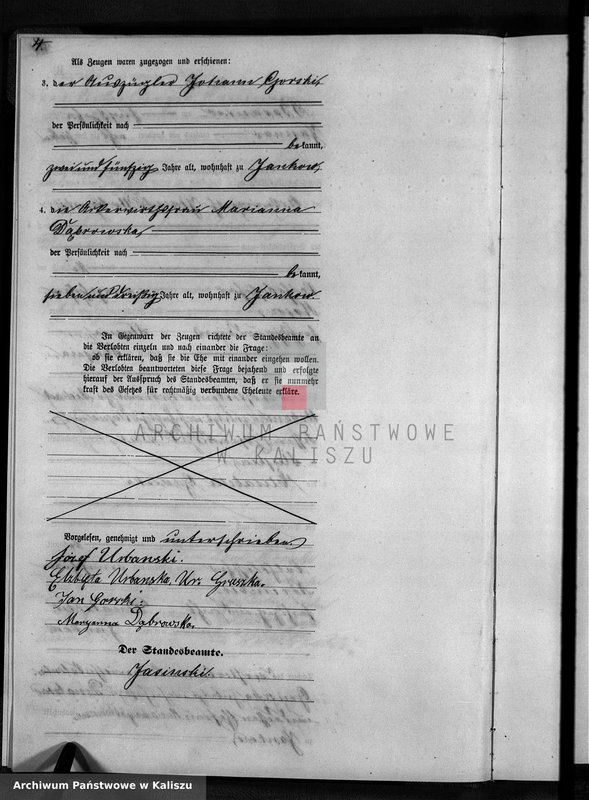 4.
Als Zeugen waren zugezogen und erschienen:
3. der Auszügler Johann Gorski,
der Persönlichkeit nach
bekannt,
zweiundfünfzig Jahre alt, wohnhaft zu Jankow,
4. die Ackerwirthsfrau Marianna
Dąbrowska,
der Persönlichkeit nach
bekannt,
siebenunddreißig Jahre alt, wohnhaft zu Jankow.
In Gegenwart der Zeugen richtete der Standesbeamte an
die Verlobten einzeln und nach einander die Frage:
ob sie erklären, daß sie die Ehe mit einander eingehen wollen.
Die Verlobten beantworteten diese Frage bejahend und erfolgte
hierauf der Ausspruch des Standesbeamten, daß er sie nunmehr
kraft des Gesetzes für rechtmäßig verbundene Eheleute erkläre.
ARCHIWUM PAŃSTWOWE
W KALISZU
Vorgelesen, genehmigt und unterschrieben.
Józef Urbanski.
Elzbyta Urbanska, Ur. Gruszka.
Jan Gorski.
Maryanna Dąbrowska.
Der Standesbeamte.
Jasinski.
Archiwum Państwowe w Kaliszu